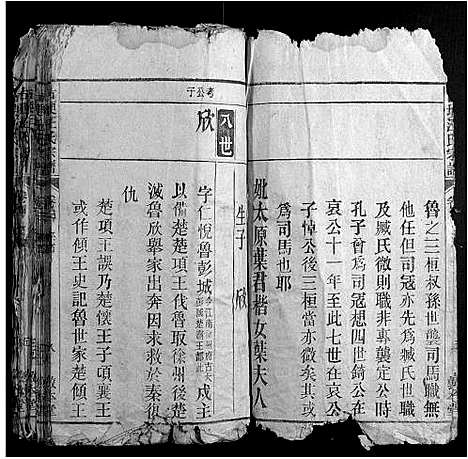 魯之三桓叔孫世襲司馬職無
他任但司寇亦先為臧氏世職
及臧氏微則職非專襲定公時
孔子曾為司寇想四世錡公在
哀公十一年至此七世在哀公
子悼公後三桓當亦微矣其或
為司馬也耶
妣太原葉君楷女葉夫人
生子 欣
八世
考公子
欣
字仁悅魯彭城
戍王
以備楚楚頃王伐魯取徐州後楚
滅魯欣舉家出奔因求救於秦復
仇
楚頃王誤乃楚懷王子頃襄王
或作傾王史記魯世家楚傾王